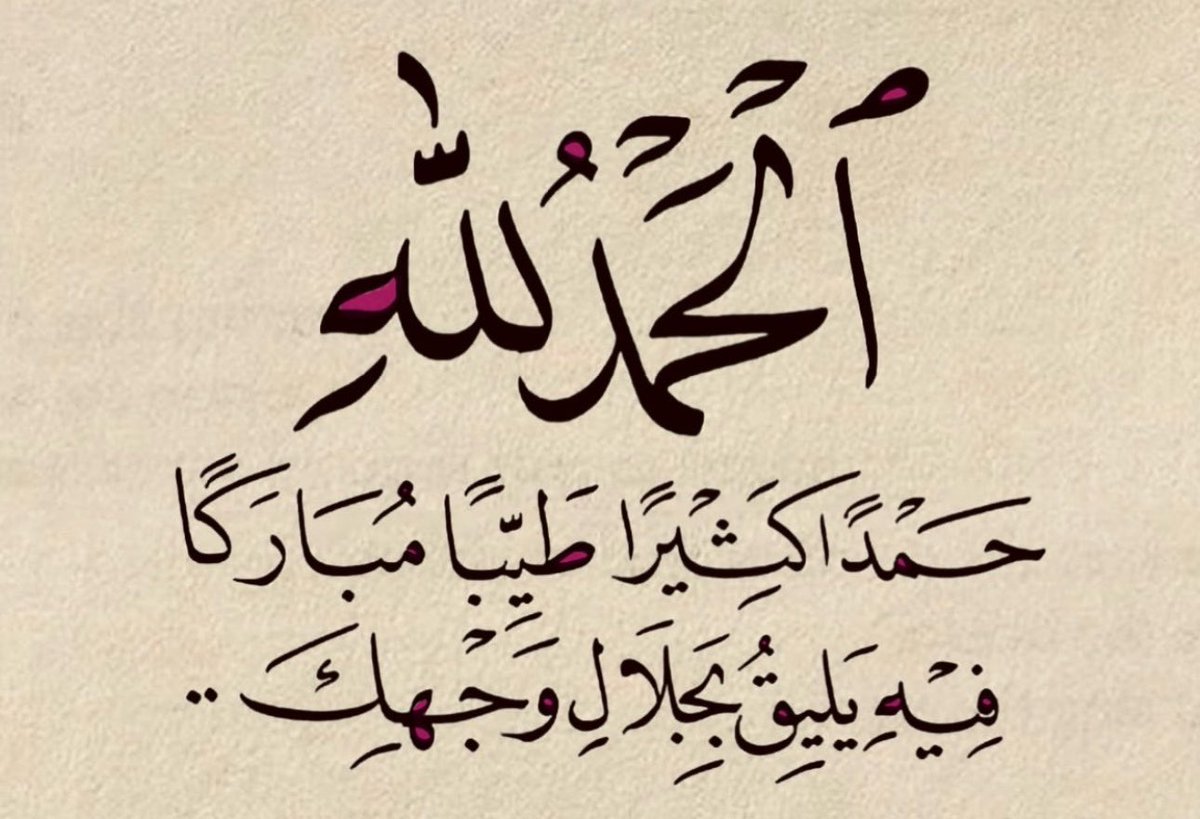 ٱلْحَمْدُ لِلّٰهِ
حَمْدًا كَثِيْرًا طَيِّبًا مُبَارَكًا
فِيْهِ يَلِيقُ بِجَلَالِ وَجْهِكَ..